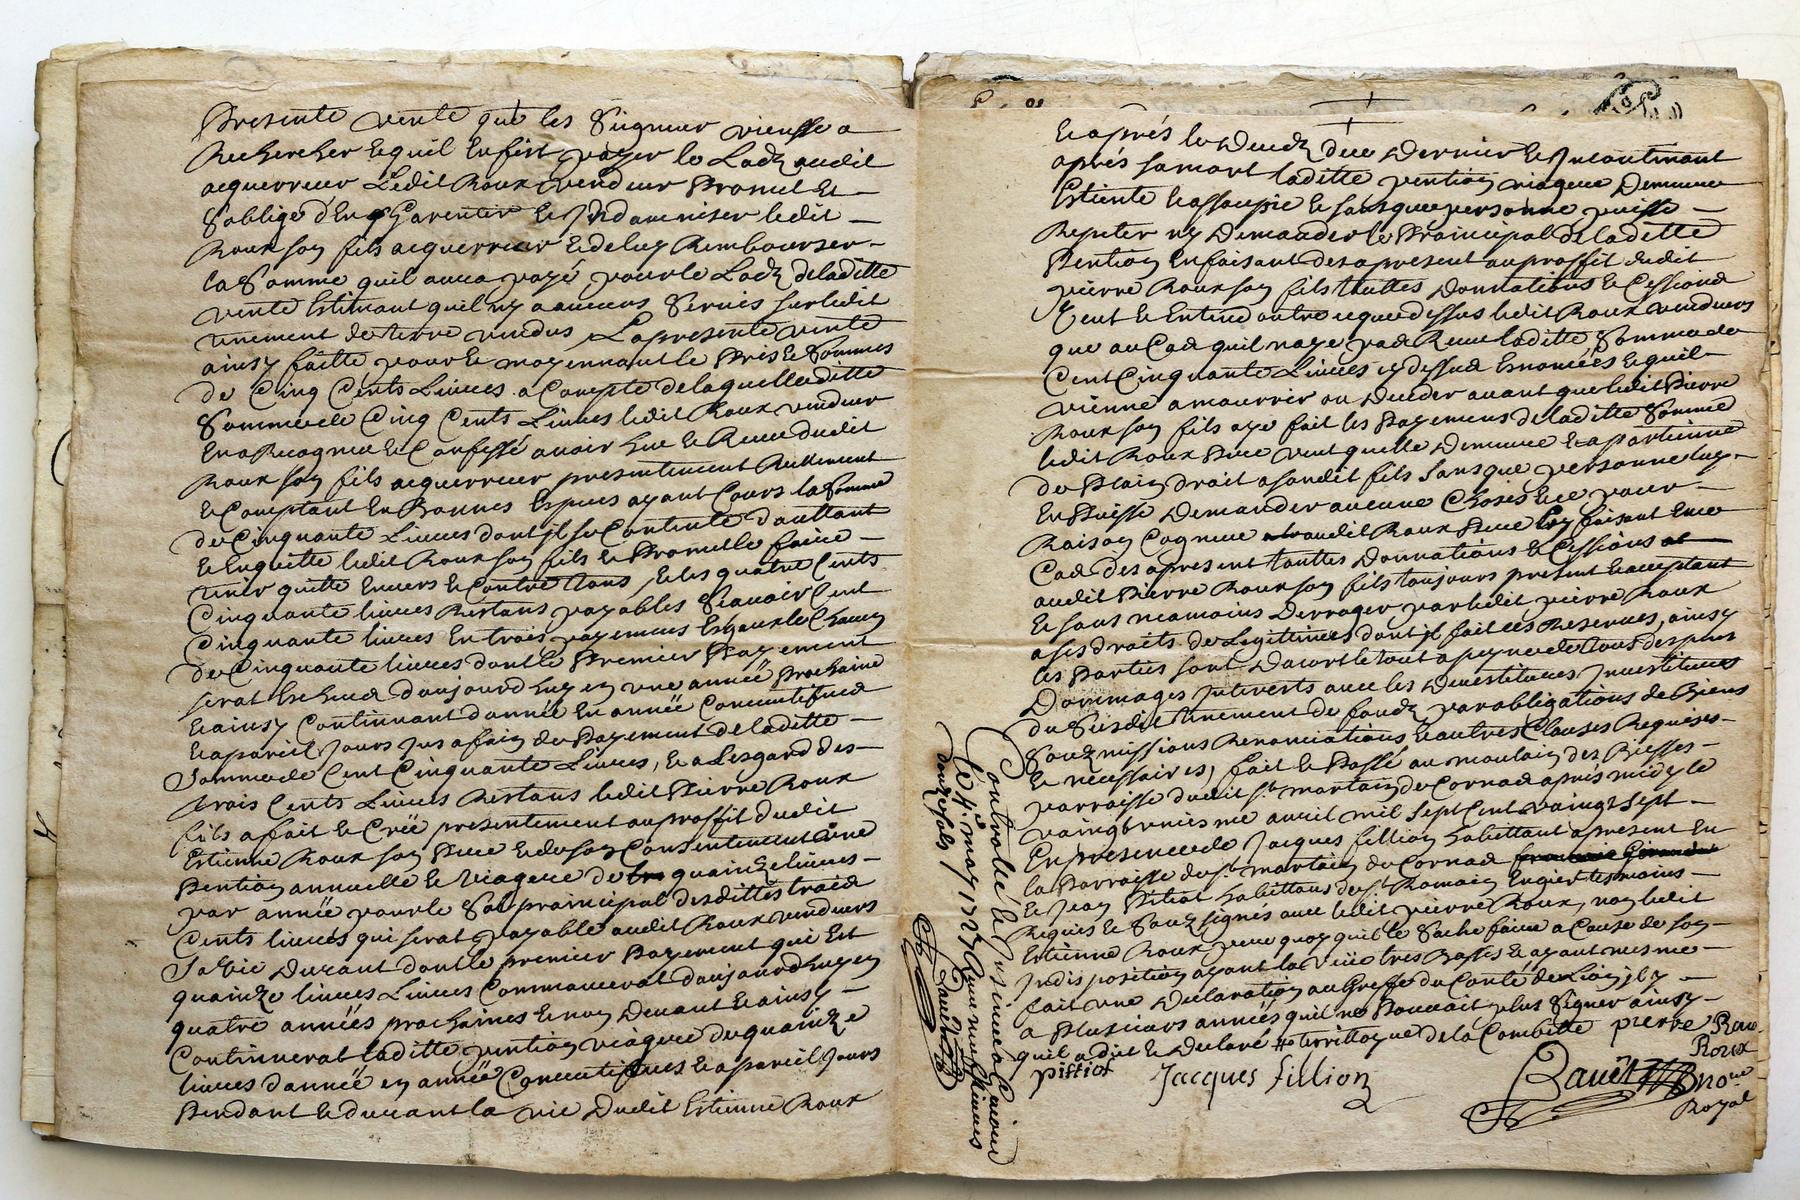 Presente vente que les Seigneur vienesse a
Rechercher Et quil En fist payer le Lodz audit
acquerreur Ledit Roux vendeur Promet Et
Soblige dEn Garentir Et Jndamniser ledit
Roux son fils acquerreur Et de luy Rembourser
la Somme quil aura payé pour le Lodz de laditte
vente Estimant quil ny a aucuns Servis sur ledit
tenement de terre vendus, La presente vente
ainsy faitte pour Et moyennant le Pris Et Sommes
de Cinq Cents Livres a Compte de laquelle ditte
Somme de Cinq Cents Livres ledit Roux vendeur
En a Recognu Et Confessé avoir heu Et Receu dudit
Roux son fils acquerreur presentement Reellement
Et Comptant En Bonnes Especes ayant Cours la Somme
de Cinquante Livres dont jl se Contente dauttant
Et Enquitte ledit Roux son fils Et Promet le faire
tenir quitte Envers Et Contre Tous, Et les quatre Cents
Cinquante livres Restans payables Scavoir Cent
Cinquante livres En trois payemens Egaux le Chacun
de Cinquante livres dont le Premier Payement
serat Escheud daujourdhuy en une année Prochaine
Et ainsy Continuant dannée En année Consecutifues
Et a pareil Jours Jus a fain de Payement de laditte
Somme de Cent Cinquante Livres, Et a Lesgard des
trois Cents Livres Restans ledit Pierre Roux
fils a fait Et Crée presentement au proffit dudit
Estienne Roux son Pere Et de son Consentement une
Pention annuelle Et Viagere de quainze livres
par année pour le Sort prainsipal desdittes trois
Cents livres qui serat payable audit Roux vendeurs
Sa Vie Durant dont le premier Payement qui Est
quainze livres Livres Commancerat daujourdhuy en
quatre années prochaines Et non Devant Et ainsy
Continuerat laditte pention viagere de quainze
livres dannée en année Consecutifues Et a pareil Jours
Pendant Et durant la vie Dudit Estienne Roux
Et aprés le Decedz dece Dernier Et Jncontinant
aprés sa mort laditte pention viagere Demeure
Esteinte Et assoupie Et sans que personne puisse
Repeter ny Demander le Prainsipal de laditte
Pention En faisant des a present au proffit dudit
pierre Roux son fils touttes Donnations Et Cessions
Veut Et Entend outre ce que dessus ledit Roux vendeurs
que au Cas quil naye pas Receu laditte Somme de
Cent Cinquante Livres cy dessus Enoncées Et quil
vienne a mourrir ou Deceder avant que ledit Pierre
Roux son fils aye fait les Payemens de laditte Somme
ledit Roux Pere veut quelle Demeure Et apartienne
de Plain droit a sondit fils sans que personne luy
En Puisse Demander aucune Choses Et ce pour
Raison Cogneue audit Roux Pere luy faisant En ce
Cas des apresent touttes Donnations Et Cessions
audit Pierre Roux son fils toujours present Et acceptant
Et sans neamoins Derroger par ledit pierre Roux
a ses droits de Legittimes dont jl fait Ces Reserves, ainsy
les Parties sont Dacort le tout a peyne de tous despens
Dommages Jnterests avec les Devestitures Jnvestitures
du Susdit tenement de fondz par obligations de Biens
Soubmissions Renonciations Et autres Clauses Requises
Et necessaires, fait Et Passé au moulain des Biesses
parroisse dudit St. martain de Cornas apres midy le
vaingtuniesme avril mil Sept Cent vaingt Sept
En presence de Jacques fillion habittant apresent En
la Parroisse de St. martain de Cornas
Et Jean Pitiot habittans de St. Romain Engier tesmoins
Requis Et Soubzsignés avec ledit pierre Roux, non ledit
Estienne Roux pere quoy quil le Sache faire a Cause de son
Jndisposition ayant la veüe tres Basses Et ayant mesme
fait une Declaration au Greffe du Conté de Lion jl y
a Plusieurs années quil ne Pouvait plus Signer ainsy
quil a dit Et Declaré territtoyre de la Combette pierre Roux
Roux
pittiot Jacques fillion
nore
Royal
Controlé
Le 4e. may 1727 Receu neuf livres
douze sols